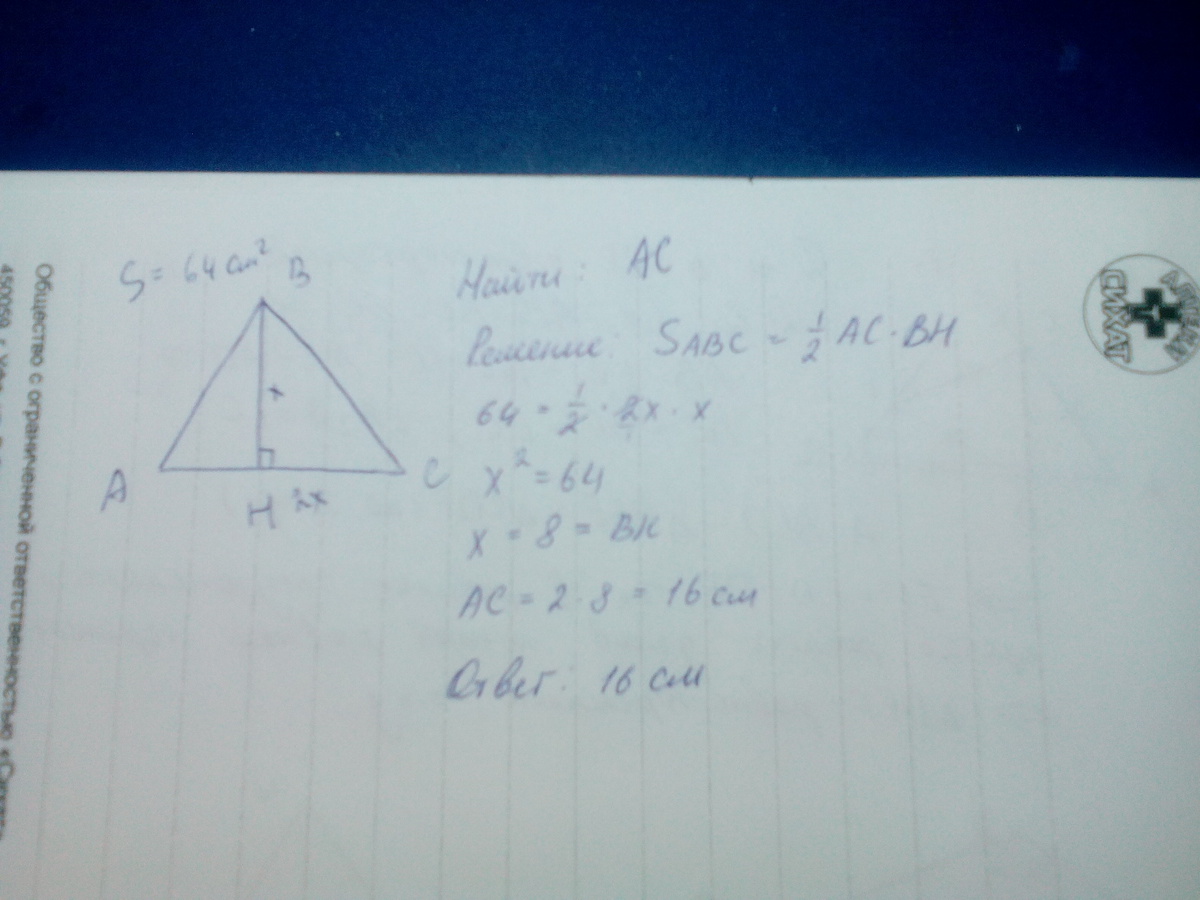 S = 64 см²
B
x
A
H
2x
C
Найти: AC
Решение: SABC = 1/2 AC · BH
64 = 1/2 · 2x · x
x² = 64
x = 8 = BH
AC = 2 · 8 = 16 см
Ответ: 16 см
СИХАТ
Общество с ограниченной ответственностью